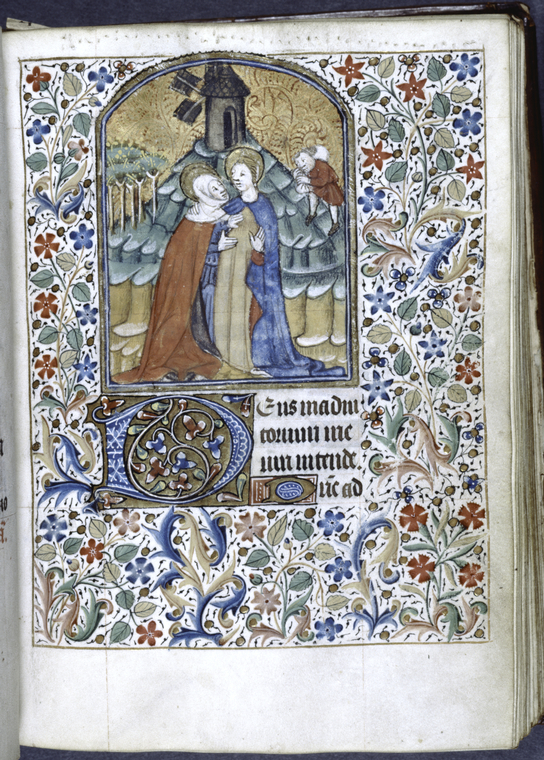 Deus in adiu
torium me
um intende.
Dñe ad